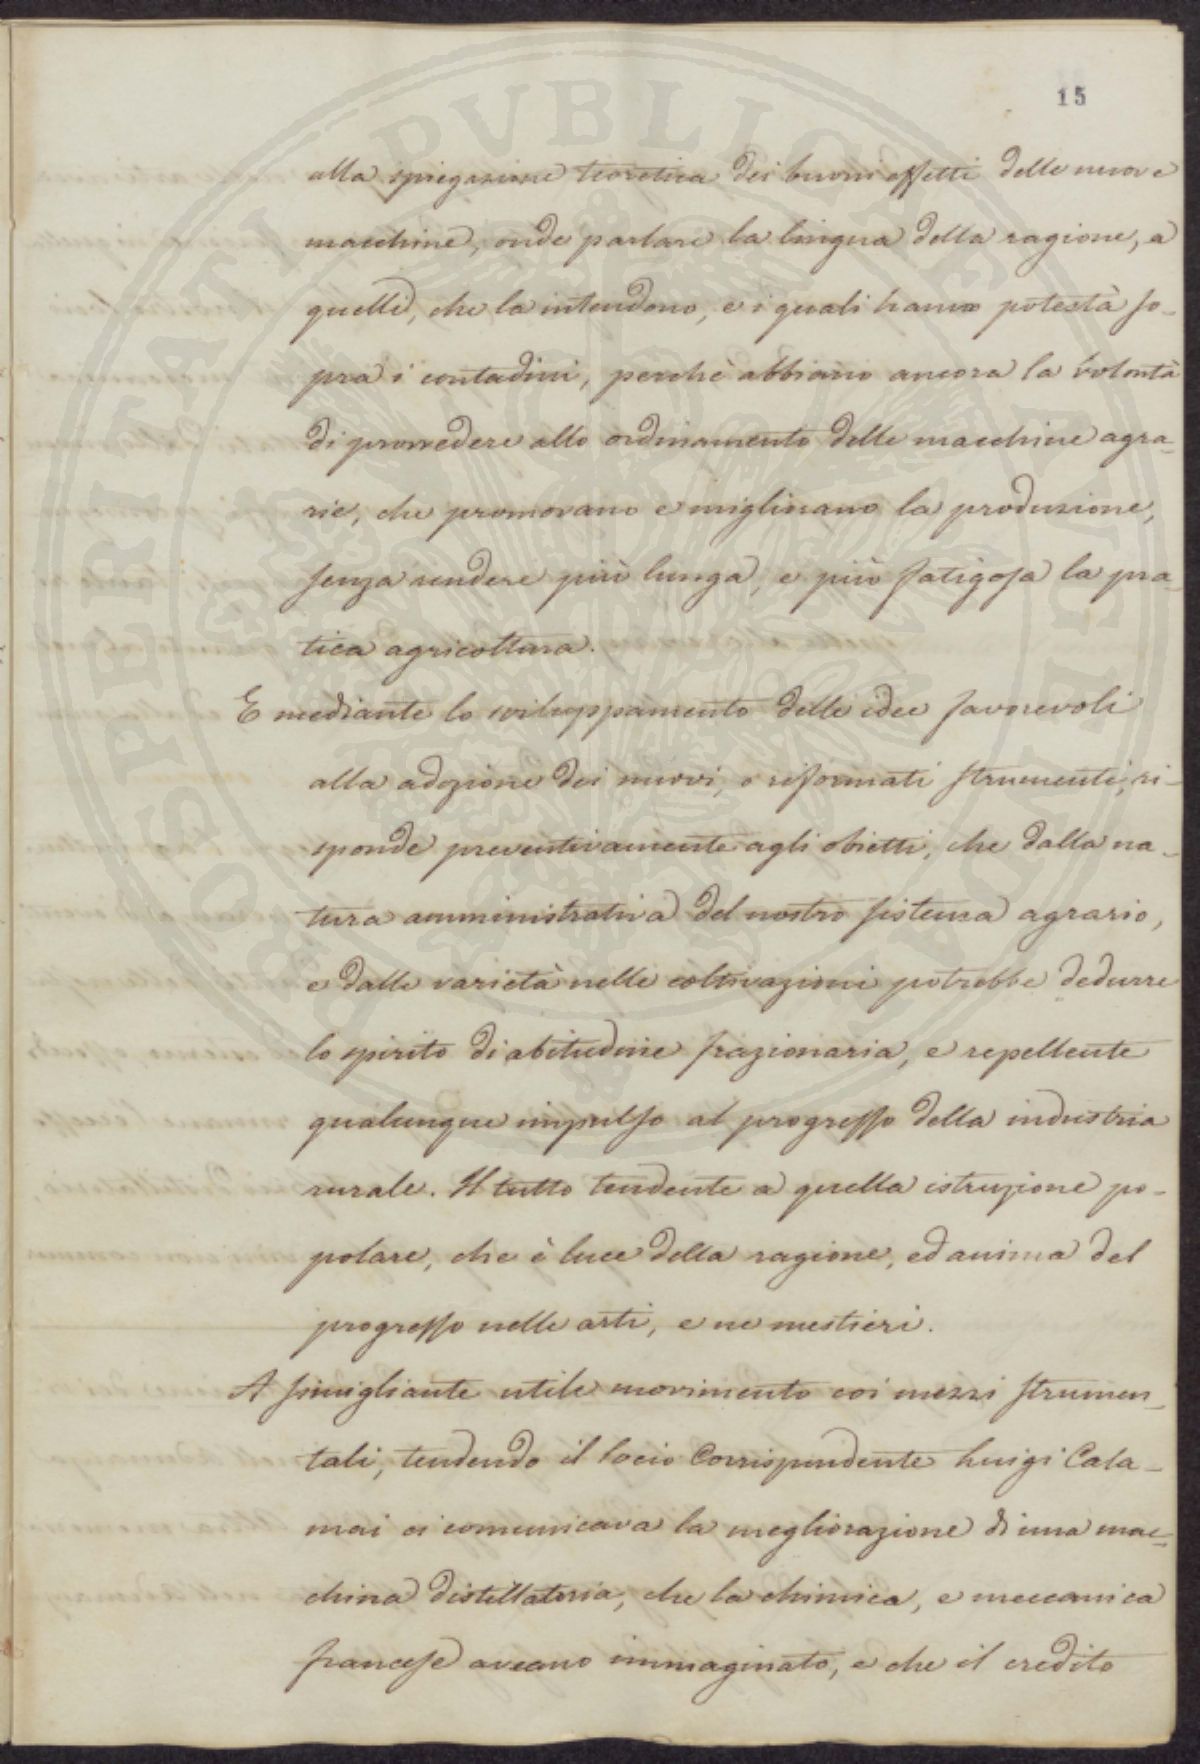 15
alla spiegazione teoretica dei buoni effetti delle nuove
macchine, onde parlare la lingua della ragione, a
quelli, che la intendono, e i quali hanno potestà so-
pra i contadini, perchè abbiano ancora la volontà
di provvedere allo ordinamento delle macchine agra-
rie, che promovano e migliorano la produzione,
senza rendere più lunga, e più fatigosa la pra-
tica agricoltura.
E mediante lo sviluppamento delle idee favorevoli
alla adozione dei nuovi, o riformati strumenti, ri-
sponde preventivamente agli obietti, che dalla na-
tura amministrativa del nostro sistema agrario,
e dalle varietà nelle coltivazioni potrebbe dedurre
lo spirito di abitudine frazionaria, e repellente
qualunque impulso al progresso della industria
rurale. Il tutto tendente a quella istruzione po-
polare, che è luce della ragione, ed anima del
progresso nelle arti, e ne mestieri.
A simigliante utile movimento coi mezzi strumen-
tali, tendendo il socio Corrispondente Luigi Cala-
mai ci comunicava la megliorazione di una mac-
china distillatoria, che la chimica, e meccanica
francese aveano immaginato, e che il credito
BOSPERITATI PVBLICAE AVGENDAE